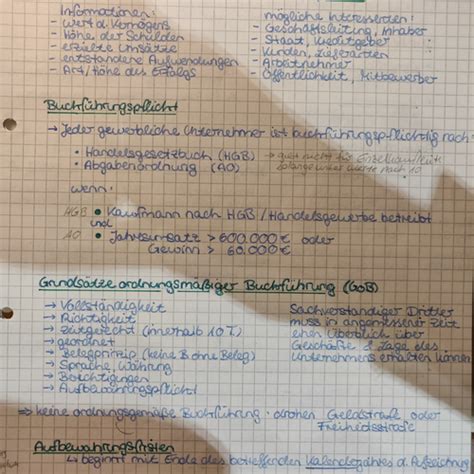 Informationen:
- Wert d. Vermögens
- Höhe der Schulden
- erzielte Umsätze
- entstandene Aufwendungen
- Art/Höhe des Erfolgs
mögliche Interessenten:
- Geschäftsleitung, Inhaber
- Staat, Kreditgeber
- Kunden, Lieferanten
- Arbeitnehmer
- Öffentlichkeit, Mitbewerber
Buchführungspflicht
→ Jeder gewerbliche Unternehmer ist buchführungspflichtig nach:
• Handelsgesetzbuch (HGB) → gilt nicht für Einzelkaufleute
• Abgabenordnung (AO) solange unter Werte nach AO
wenn:
HGB • Kaufmann nach HGB / Handelsgewerbe betreibt
und
AO • Jahresumsatz > 600.000 € oder
Gewinn > 60.000 €
Grundsätze ordnungsmäßiger Buchführung (GoB)
→ Vollständigkeit
→ Richtigkeit
→ zeitgerecht (innerhalb 10 T)
→ geordnet
→ Belegprinzip (keine B ohne Beleg)
→ Sprache, Währung
→ Berichtigungen
→ Aufbewahrungspflicht
Sachverständiger Dritter
muss in angemessener Zeit
einen Überblick über
Geschäfte & Lage des
Unternehmens erhalten können
⇒ keine ordnungsgemäße Buchführung: drohen Geldstrafe oder
Freiheitsstrafe
Aufbewahrungsfristen
↳ beginnt mit Ende des betreffenden Kalenderjahres d. Aufzeichnung